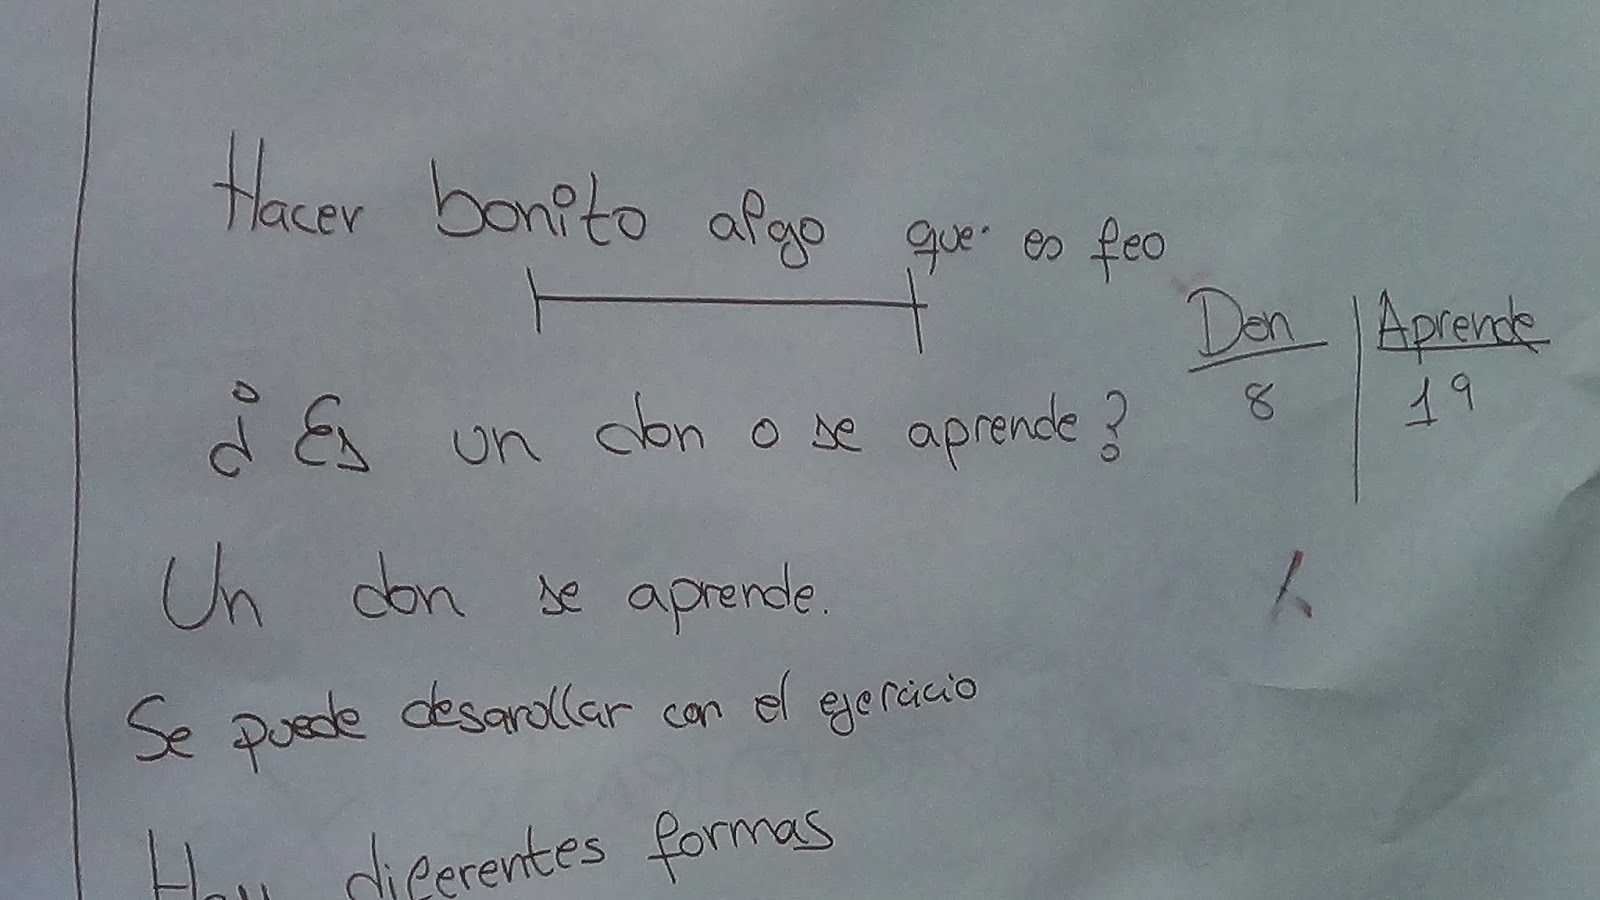 Hacer bonito algo que es feo
Don | Aprende
8 | 19
¿Es un don o se aprende?
Un don se aprende.
Se puede desarollar con el ejercicio
Hay diferentes formas